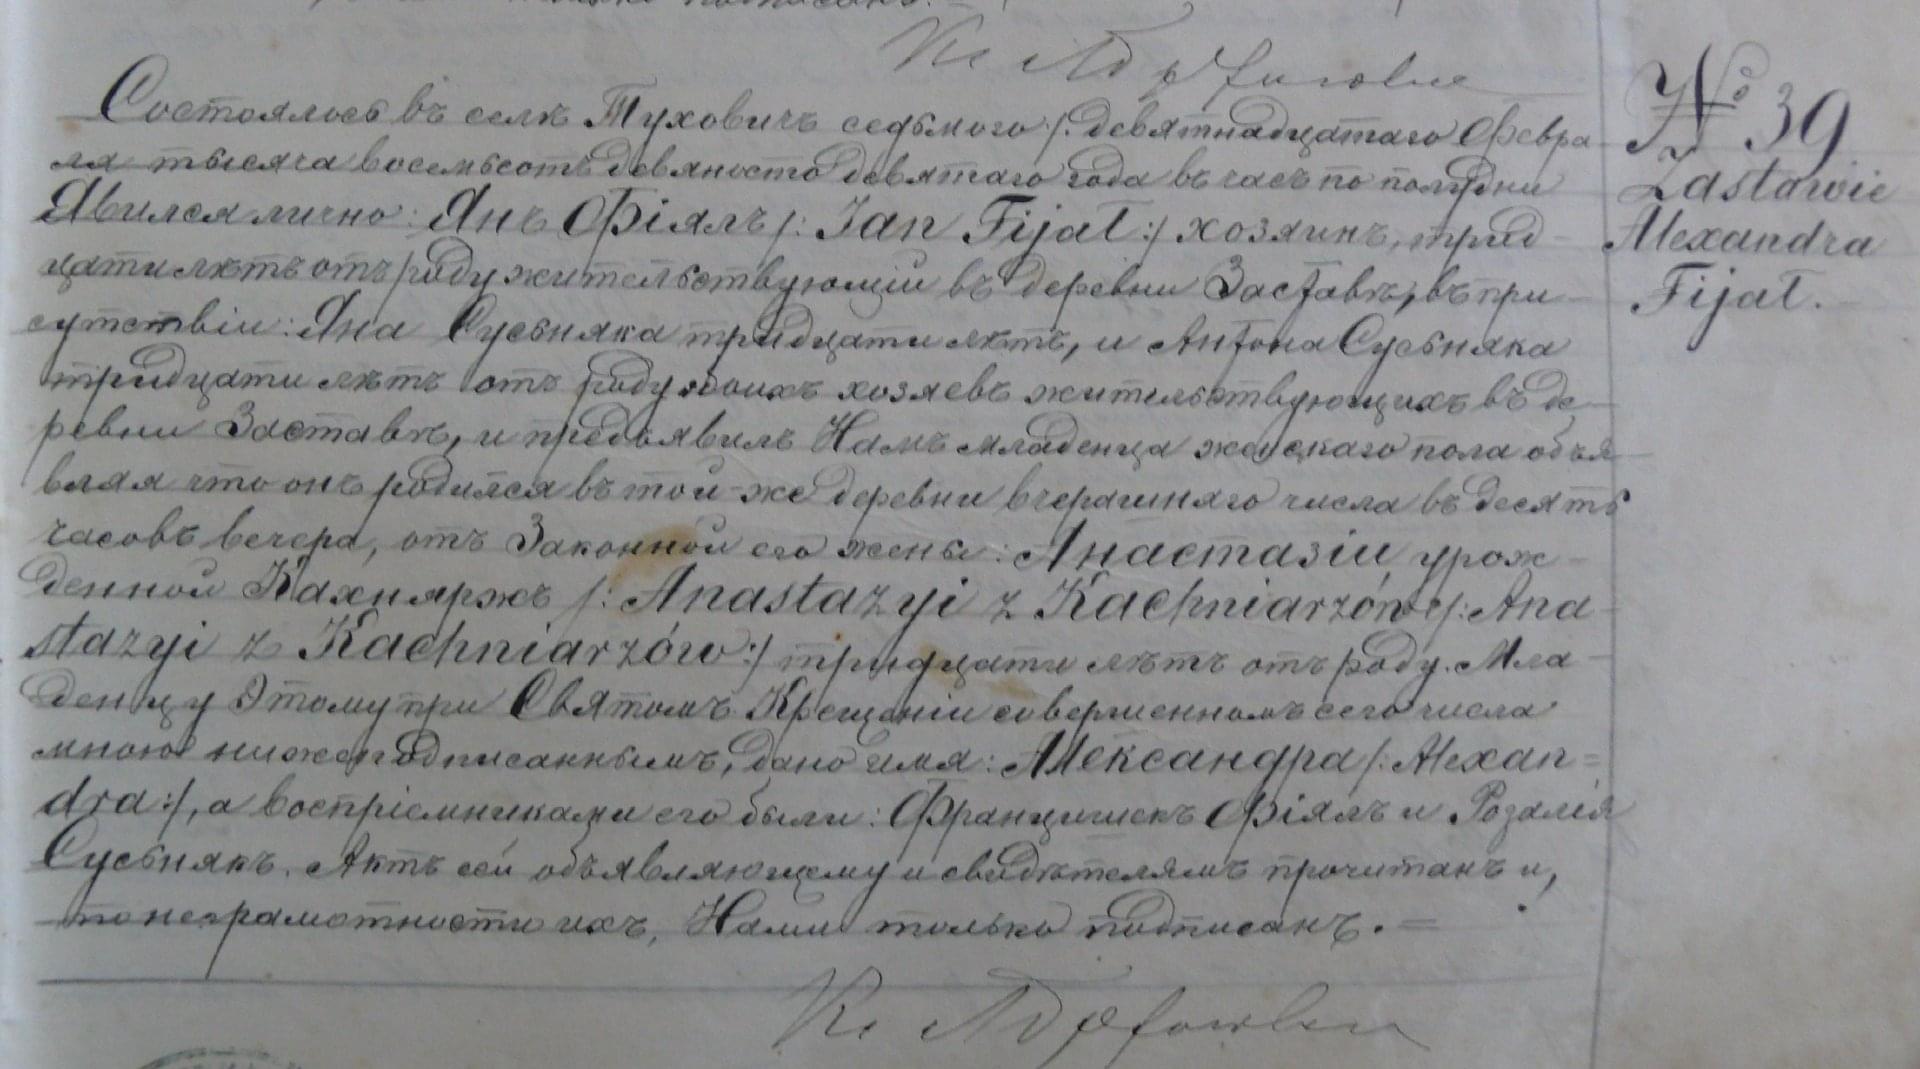 Состоялось въ селѣ Туховичъ седьмого /: девятнадцатаго Февра
ля тысяча восемьсотъ девяносто девятаго года въ часъ по полудни
Явился лично: Янъ Фіялъ /: Jan Fijał :/ хозяинъ, трид-
цати лѣтъ отъ роду жительствующій въ деревни Заставѣ, въ при-
сутствіи: Яна Сусьняка тридцати лѣтъ, и Антона Сусьняка
тридцати лѣтъ отъ роду обоихъ хозяевъ жительствующихъ въ де-
ревни Заставѣ, и предъявилъ Намъ младенца женскаго пола объя-
вляя что онъ родился въ той-же деревни вчерашняго числа въ десять
часовъ вечера, отъ Законной его жены: Анастазіи, урож-
денной Кахняржъ /: Anastazyi z Kachniarzów /: Ana-
stazyi z Kachniarzów :/ тридцати лѣтъ отъ роду. Мла-
денцу Этому при Святомъ Крещеніи совершенномъ сего числа
мною нижеподписаннымъ, дано имя: Александра /: Alexan=
dra :/, а воспріемниками его были: Францишекъ Фіялъ и Розалія
Сусьнякъ. Актъ сей объявляющему и свидѣтелямъ прочитанъ и,
по неграмотности ихъ, Нами только подписанъ. =
№ 39
Zastawie
Alexandra
Fijał.